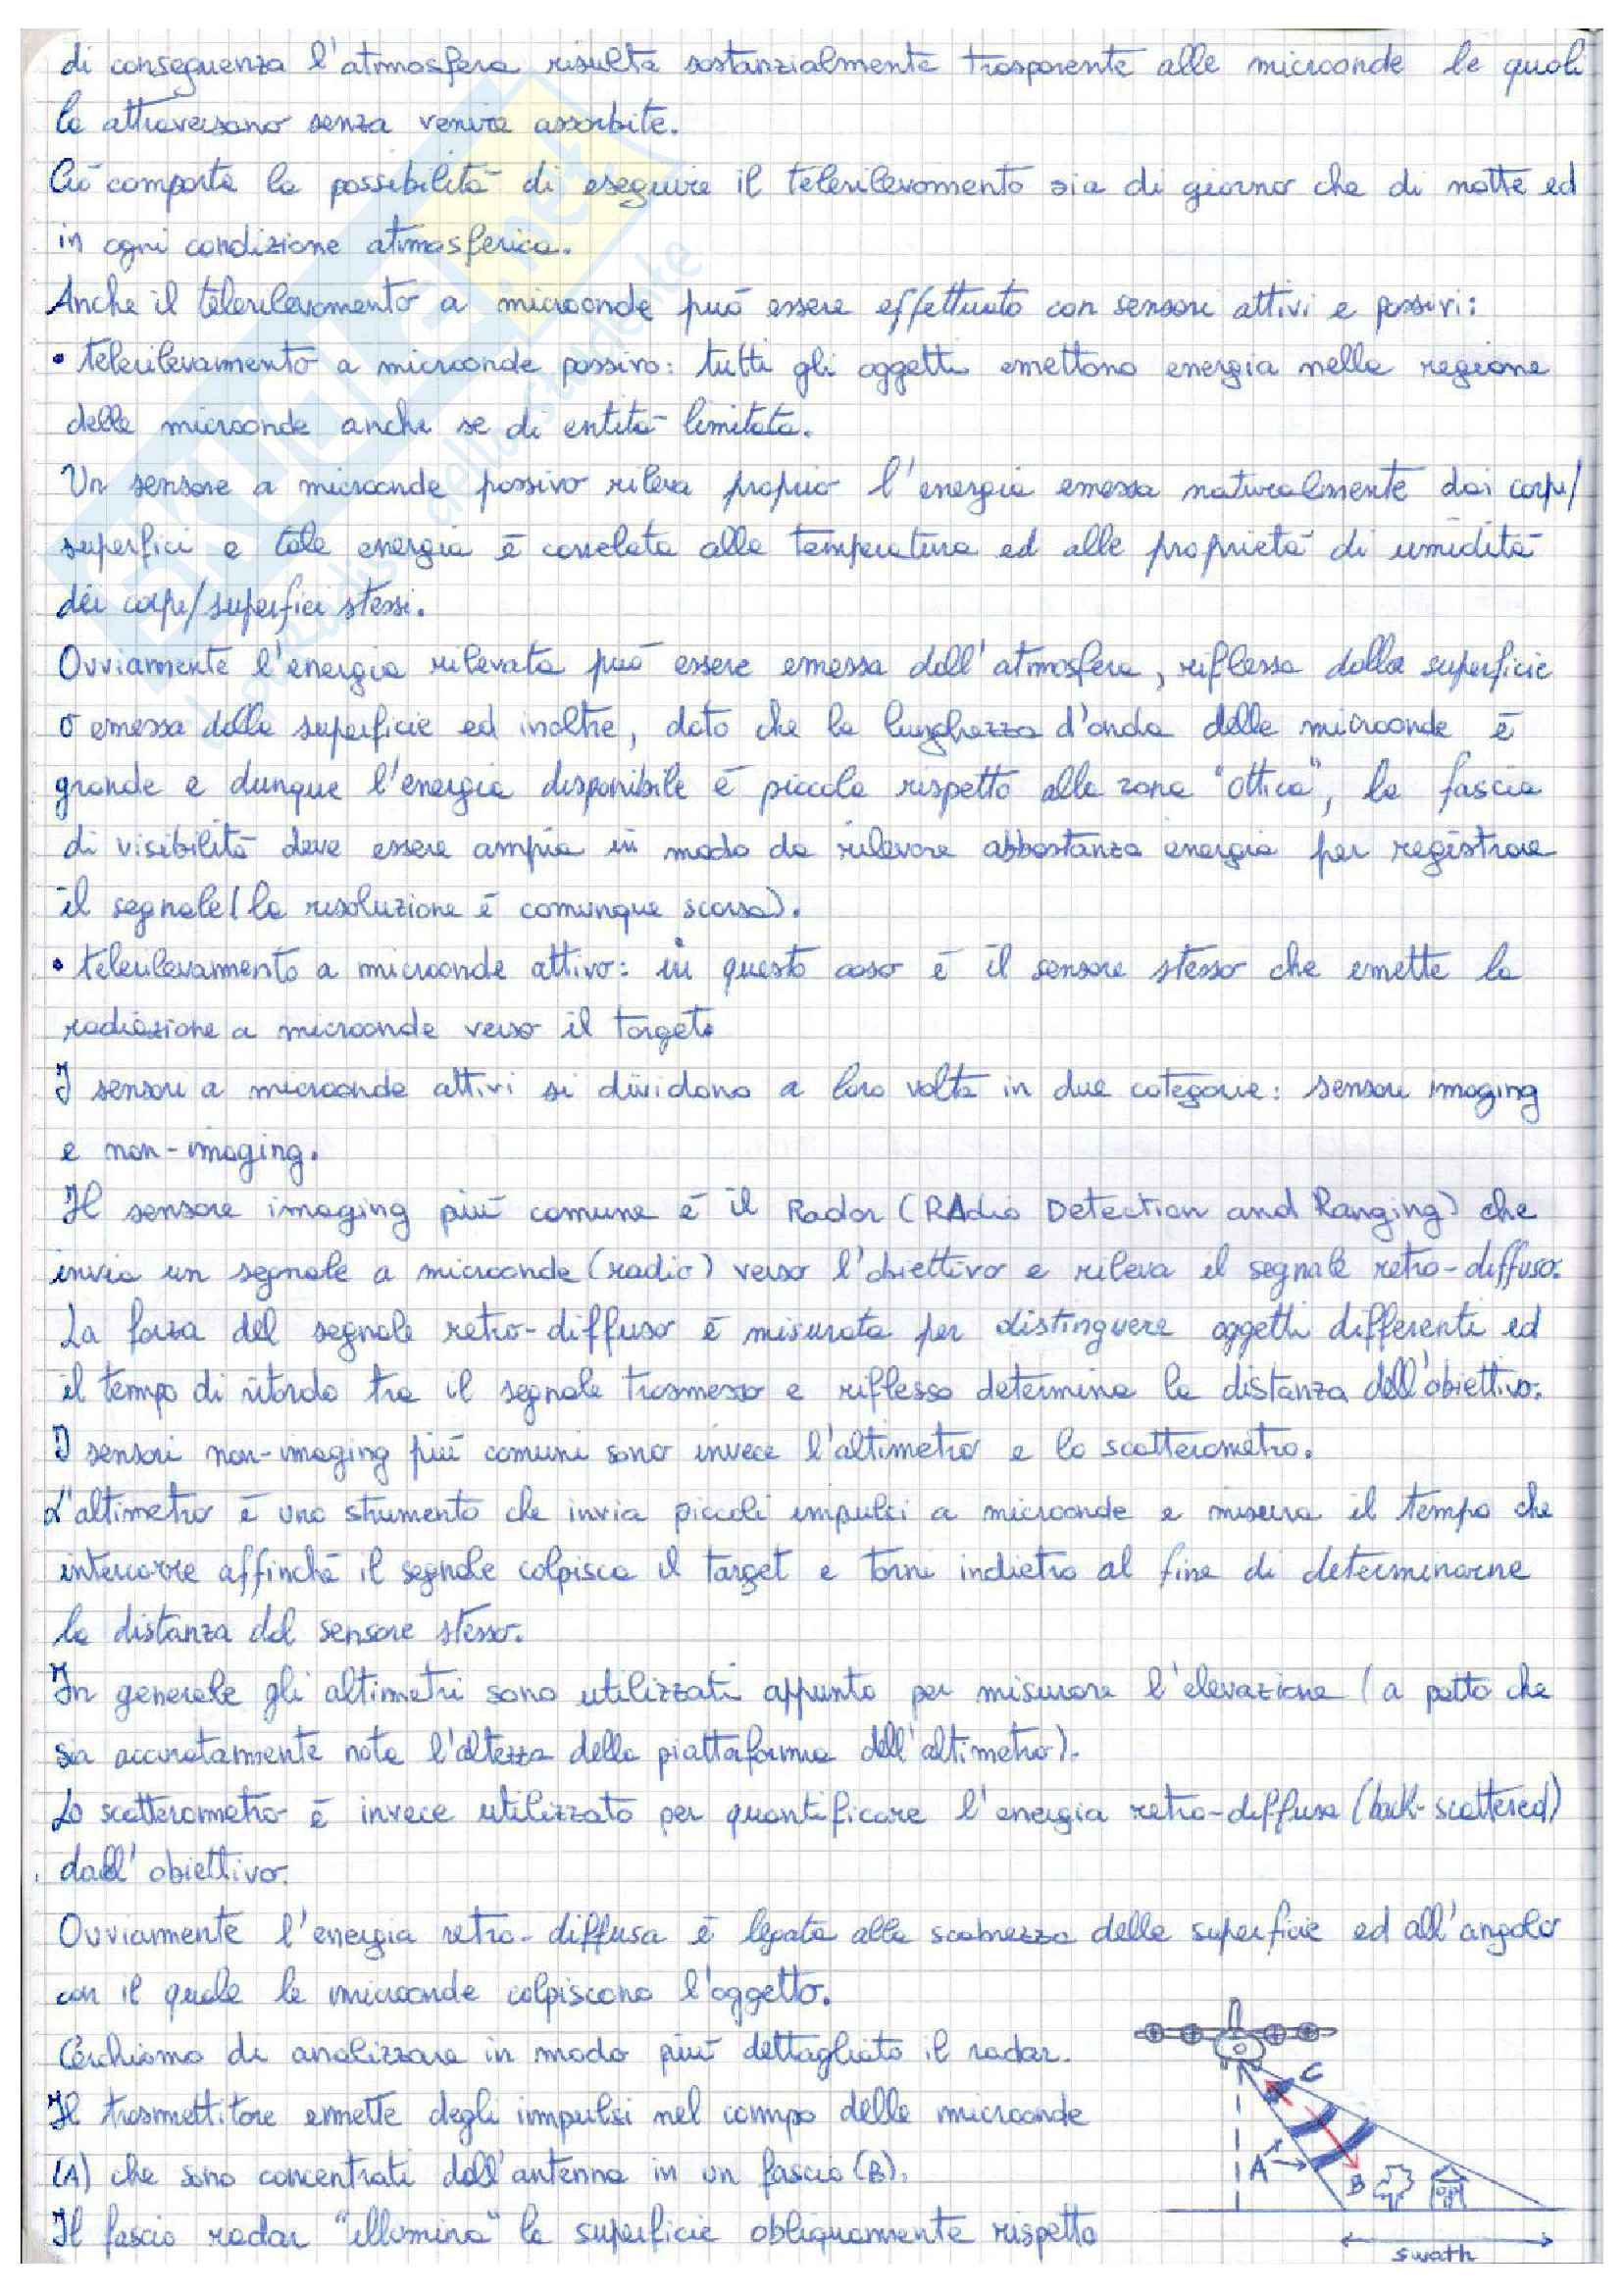 di conseguenza l'atmosfera risulta sostanzialmente trasparente alle microonde le quali
la attraversano senza venire assorbite.
Ciò comporta la possibilità di eseguire il telerilevamento sia di giorno che di notte ed
in ogni condizione atmosferica.
Anche il telerilevamento a microonde può essere effettuato con sensori attivi e passivi:
• telerilevamento a microonde passivo: tutti gli oggetti emettono energia nella regione
delle microonde anche se di entità limitata.
Un sensore a microonde passivo rileva proprio l'energia emessa naturalmente dai corpi/
superfici e tale energia è correlata alla temperatura ed alle proprietà di umidità
dei corpi/superfici stessi.
Ovviamente l'energia rilevata può essere emessa dall'atmosfera, riflessa dalla superficie
o emessa dalla superficie ed inoltre, dato che la lunghezza d'onda delle microonde è
grande e dunque l'energia disponibile è piccola rispetto alla zona "ottica", la fascia
di visibilità deve essere ampia in modo da rilevare abbastanza energia per registrare
il segnale (la risoluzione è comunque scarsa).
• telerilevamento a microonde attivo: in questo caso è il sensore stesso che emette la
radiazione a microonde verso il target.
I sensori a microonde attivi si dividono a loro volta in due categorie: sensori imaging
e non-imaging.
Il sensore imaging più comune è il Radar (RAdio Detection and Ranging) che
invia un segnale a microonde (radio) verso l'obiettivo e rileva il segnale retro-diffuso.
La forza del segnale retro-diffuso è misurata per distinguere oggetti differenti ed
il tempo di ritardo tra il segnale trasmesso e riflesso determina la distanza dell'obiettivo.
I sensori non-imaging più comuni sono invece l'altimetro e lo scatterometro.
L'altimetro è uno strumento che invia piccoli impulsi a microonde e misura il tempo che
intercorre affinchè il segnale colpisca il target e torni indietro al fine di determinarne
la distanza dal sensore stesso.
In generale gli altimetri sono utilizzati appunto per misurare l'elevazione (a patto che
sia accuratamente nota l'altezza della piattaforma dell'altimetro).
Lo scatterometro è invece utilizzato per quantificare l'energia retro-diffusa (back-scattered)
dall'obiettivo.
Ovviamente l'energia retro-diffusa è legata alla scabrezza delle superficie ed all'angolo
con il quale le microonde colpiscono l'oggetto.
Cerchiamo di analizzare in modo più dettagliato il radar.
Il trasmettitore emette degli impulsi nel campo delle microonde
(A) che sono concentrati dall'antenna in un fascio (B).
Il fascio radar "illumina" la superficie obliquamente rispetto
C
A
B
swath